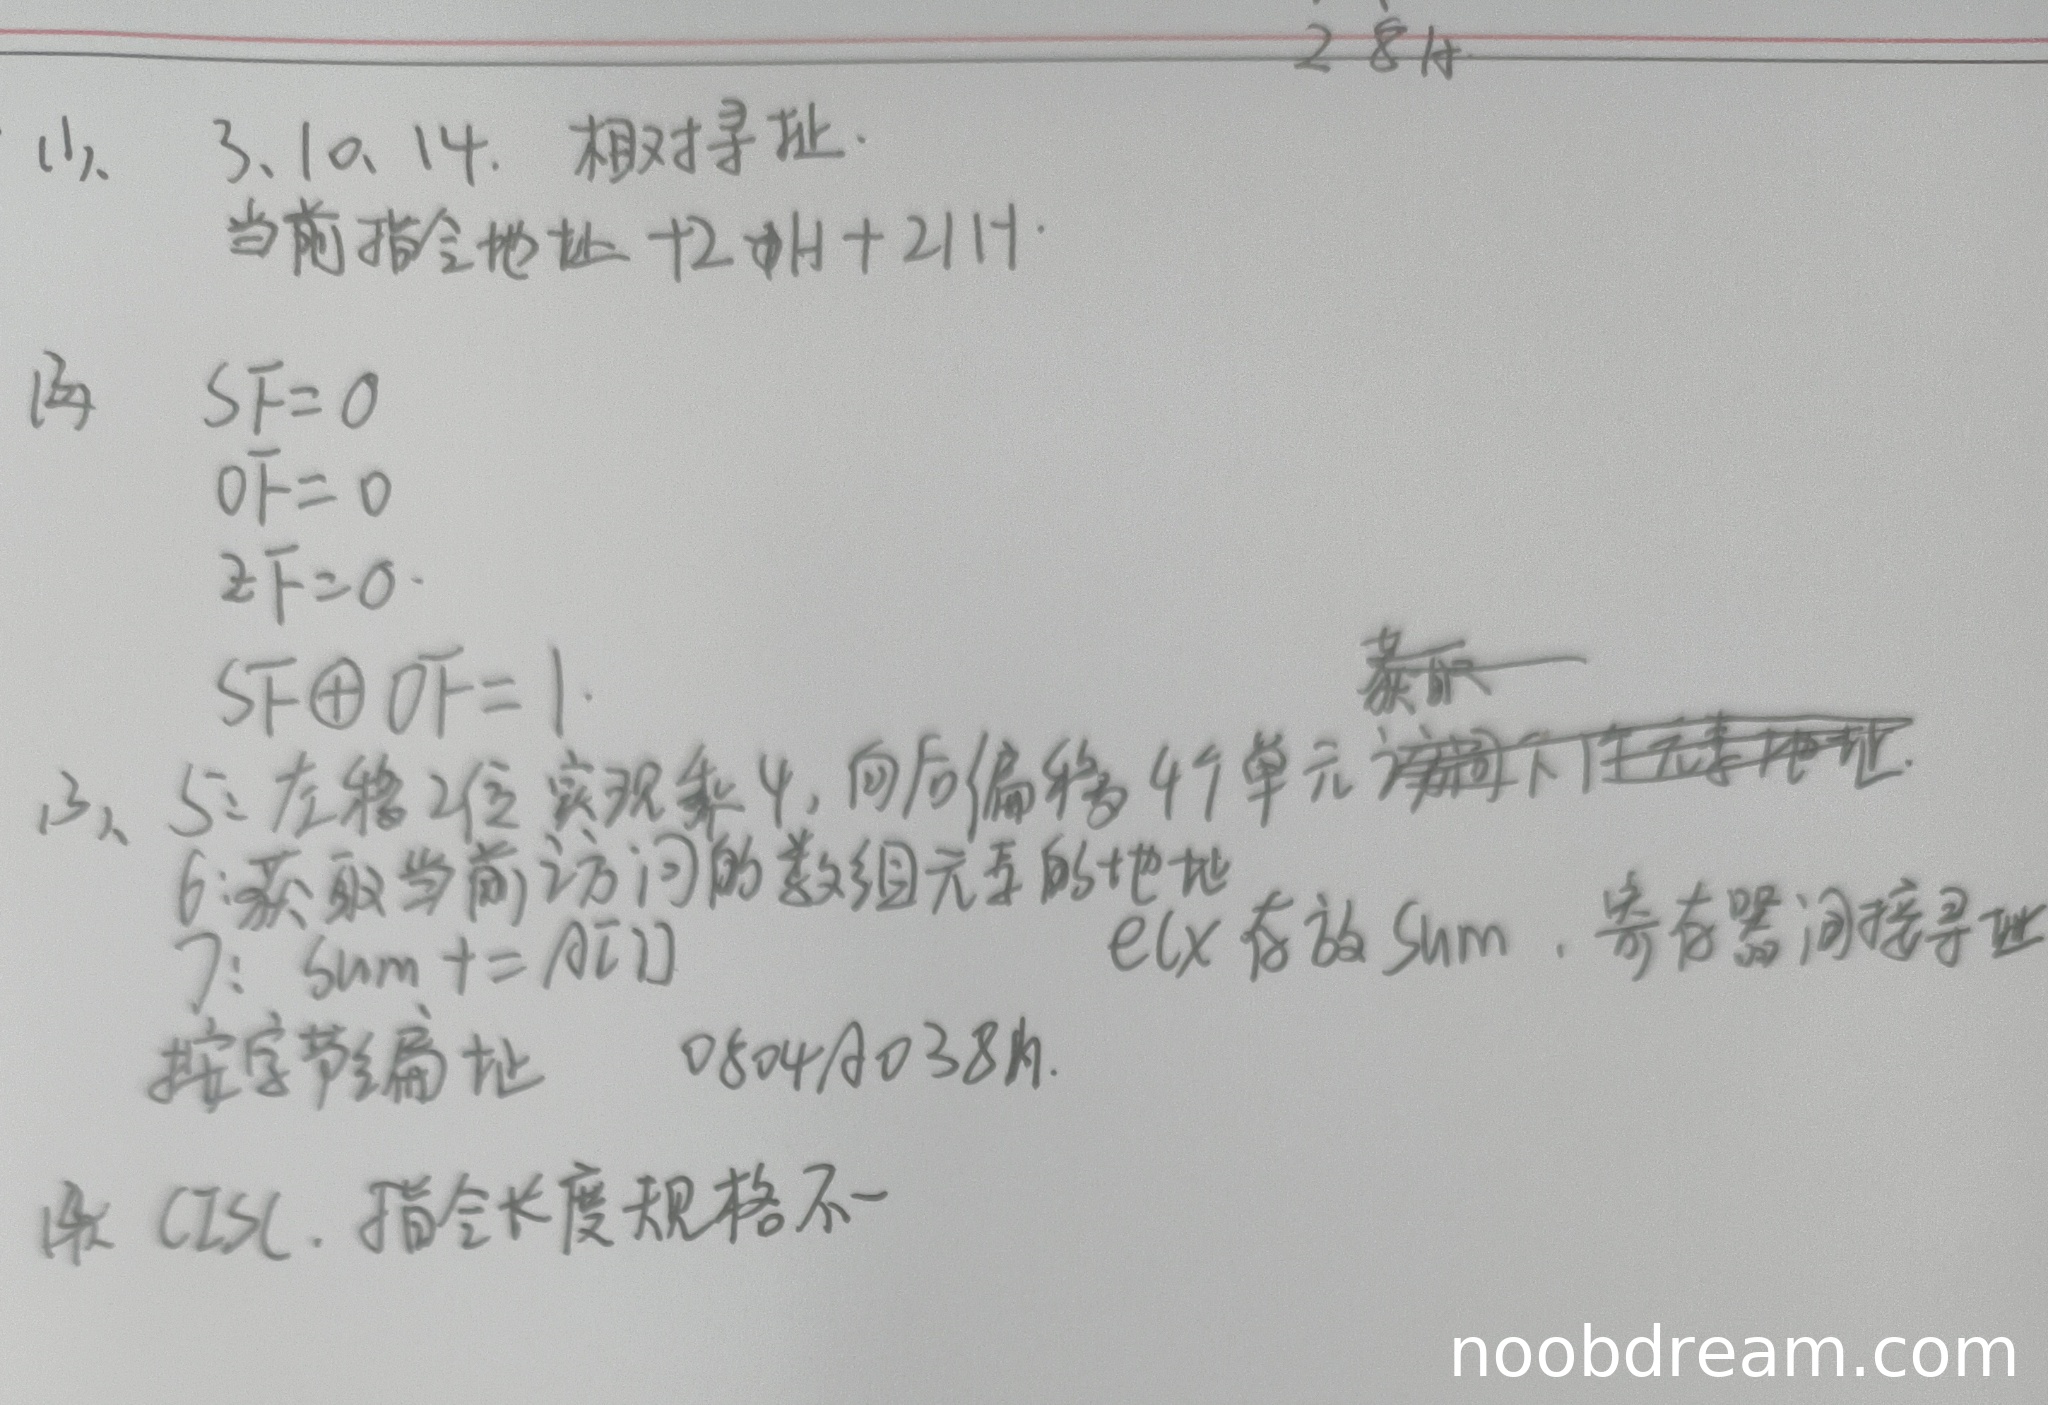 28H
(1)、 3、10、14. 相对寻址.
当前指令地址+2H+21H.
SF=0
OF=0
ZF=0.
SF⊕OF=1.
(3)、 5: 左移2位实现乘4,向后偏移4个单元
6:获取当前访问的数组元素的地址
7: sum += A[i] ecx存放sum.寄存器间接寻址
按字节编址 0804A038H.
CISC. 指令长度规格不一
noobdream.com